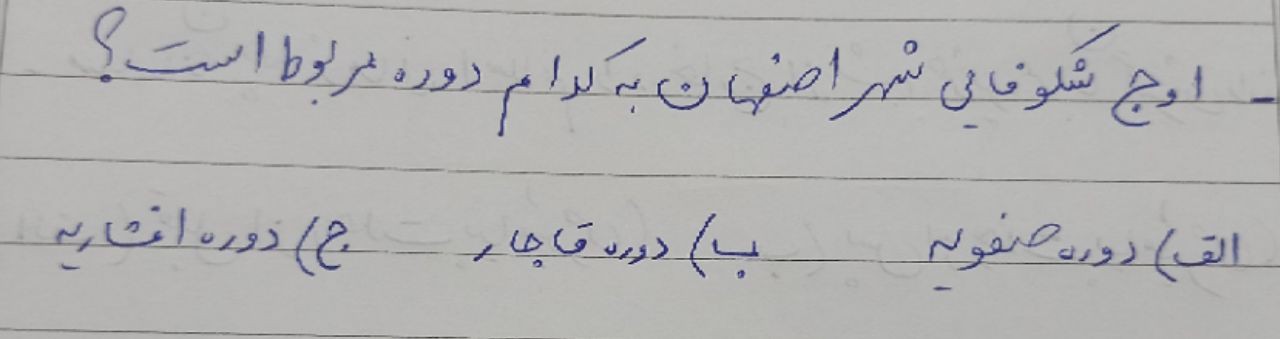 - اوج شکوفایی شهر اصفهان به کدام دوره مربوط است؟
الف) دوره صفویه ب) دوره قاجار ج) دوره افشاریه